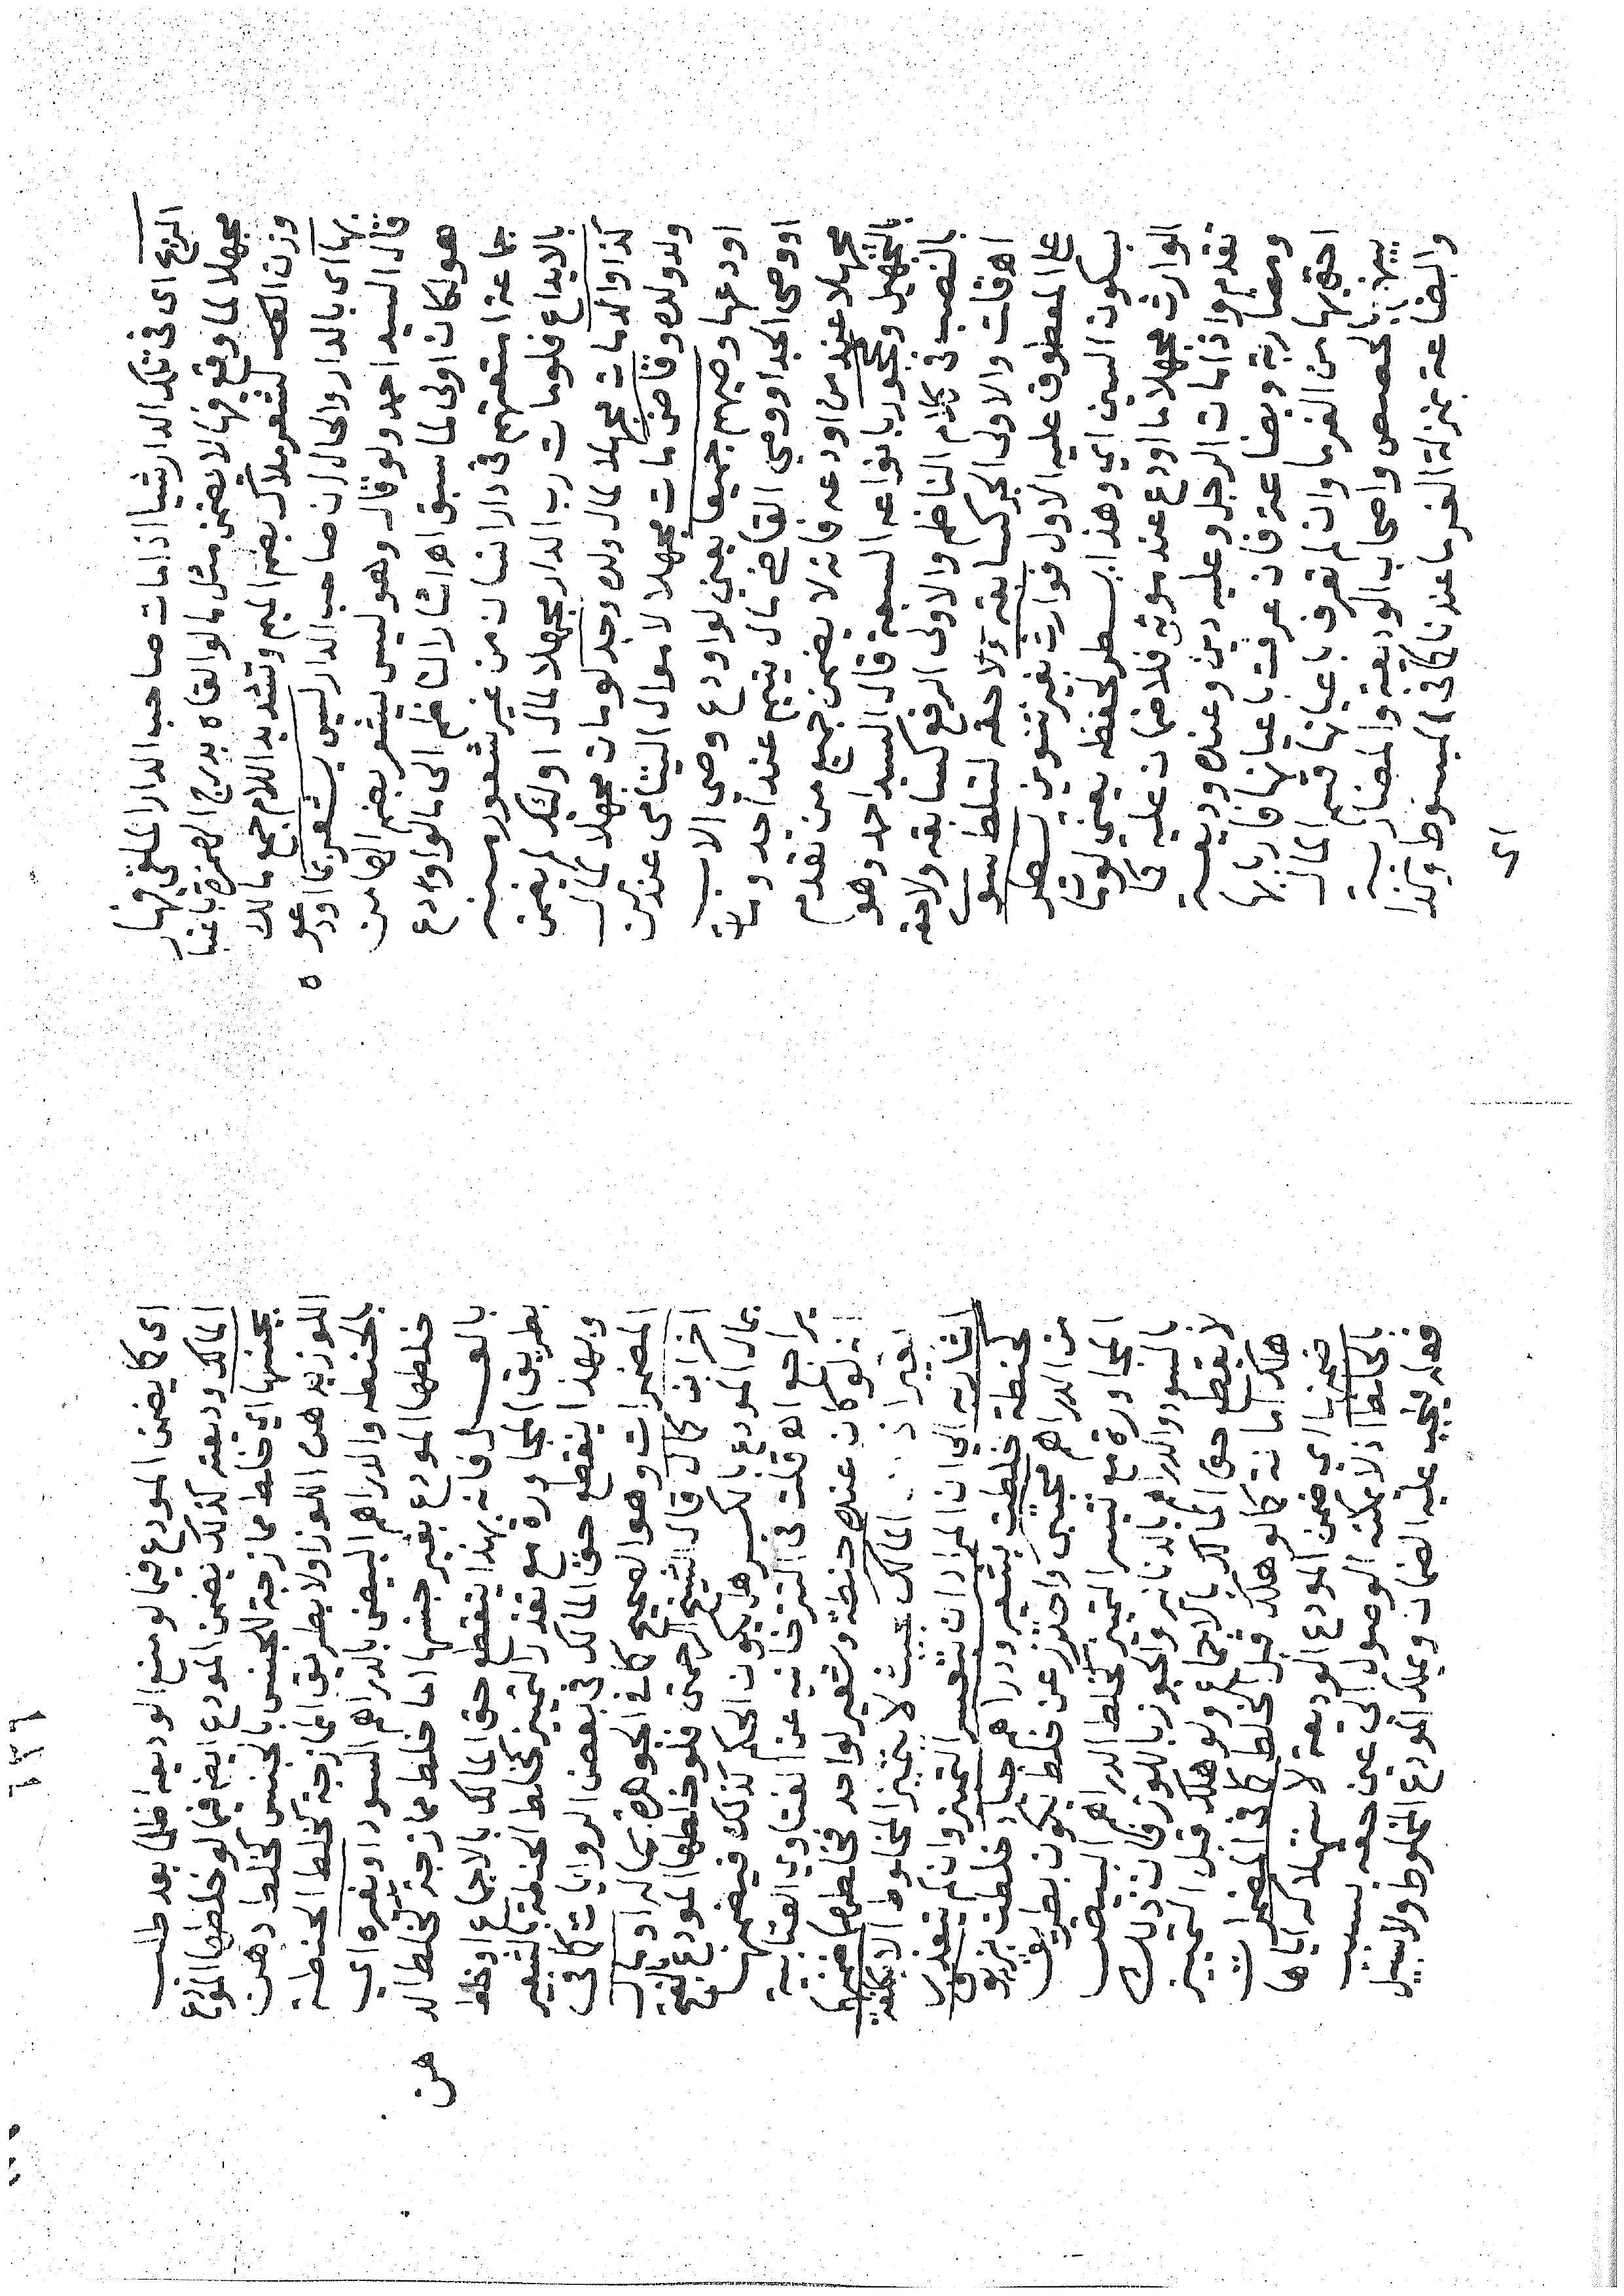 الريح اى فى تلك الدار شيا اذا مات صاحب الدار الملقى فيها
مجهلا لما وقع فيها لا يضمن مثل ما لو القاه بدرج الهمزة باغبا
وزن الف لشعر ملاك بضم الميم وتشديد اللام جمع مالك
بها اى بالدار والحال ان صاحب الدار ليس يشعر بما اودعو
ه
قال السيد احمد ولو قال وهو ليس يشعر بضم الها من
هو لكان اولى لما سبق اه اشار الناظم الى ما لو اودع
جماعة امتعتهم فى دار انسان من غير شعور منه
بالايداع فلو مات رب الدار مجهلا لمال اولئك لم يضمن
كذا والد مات مجهلا لمال ولده وجد لو مات مجهلا لمال
ولد ولده وقاض مات مجهلا لاموال اليتامى عند من
اودعها وصيهم جميعا يعنى لو اودع وصى الاب
او وصى الجد او وصى القاضى مال يتيم عند احد ومات
مجهلا عند من اودعه فانه لا يضمن جميع من تقدم
بالتجهيل ومحجور بانواعه السبعة قال السيد احمد وهو
بالنصب فى كلام الناظم والاولى الرفع كسابقه ولاحقه
اه قات والاولى الجر كسابقه ولاحقه لتسلط سو
على المعطوف عليه الاول فوارث بغير تنوين يسطر
بسكون السين اى وهذا يسطر لحفظه يعنى لو مات
الوارث مجهلا ما اودع عند مورثه فلا ضمان عليه كما
تقدم واذا مات الرجل وعليه دين وعنده وديعة
ومضاربة وبضاعة فان عرفت باعيانها فاربابها
احق بها من الغرما وان لم تعرف باعيانها قسم المال
بينهم بالحصص واصحاب الوديعة والمضاربة
والبضاعة بمنزلة الغرما عندنا كما فى المبسوط وكذا
اى
اى كما يضمن المودع فيما لو منع الوديعة ظلما بعد طلب
المالك وديعته كذلك يضمن المودع ايضا فيما لو خلطها المودع
بجنسها اى خلط ممازجة للجنس بالجنس كخلط دهن
اللوز بدهن اللوز او لا بطريق الممازجة كخلط الحنطة
بالحنطة والدراهم البيض بالدراهم السود او بغيره اى
خلطها المودع بغير جنسها اما خلط ممازجة كخلط الد
هن
بالعسل فانه بهذا ينقطع حق المالك بالاجماع او خلط
بطريق المجاورة مع تعذر التمييز كخلط الحنطة بالشعير
وبهذا ينقطع حق المالك فى بعض الروايات كما فى
المضمرات وهو الصحيح كما فى الجوهرة بماله او مال
اخر ابن كمال قال الشيخ الرحمتى فلو خلطها المودع بالفتح
بمال المودع بالكسر هل يكون الحكم كذلك فيضمنها
يراجع اه قلت فى التترخانية عن الفتاوى العتابية
لو كان عنده حنطة وشعير لواحد فخلطهما ضمنهما
بغير اذن المالك بحيث لا يتميز المخلوط الا بكلفة
اشار به الى ان المراد ان تعسر التمييز وان لم يتعذر ق
كحنطة خلطت بشعير ودراهم جياد خلطت بزيوف
من الدراهم مجتبى واحترز عن خلط يكون بطريق
المجاورة مع تيسر التمييز كخلط الدراهم البيض
بالسود والدراهم بالدنانير والجوز باللوز فان ذلك
لا يقطع حق المالك بالاجماع ولو هلك قبل التمييز
هلك امانة كما لو هلك قبل الخلط كما فى المضمرات
ضمنها اى ضمن المودع الوديعة لاستهلاكه اياها
بالخلط اذ لا يمكنه الوصول الى عين حقه بسبب
فعله فيجب عليه الضمان وعلك المودع المخلوط ولا سبيل